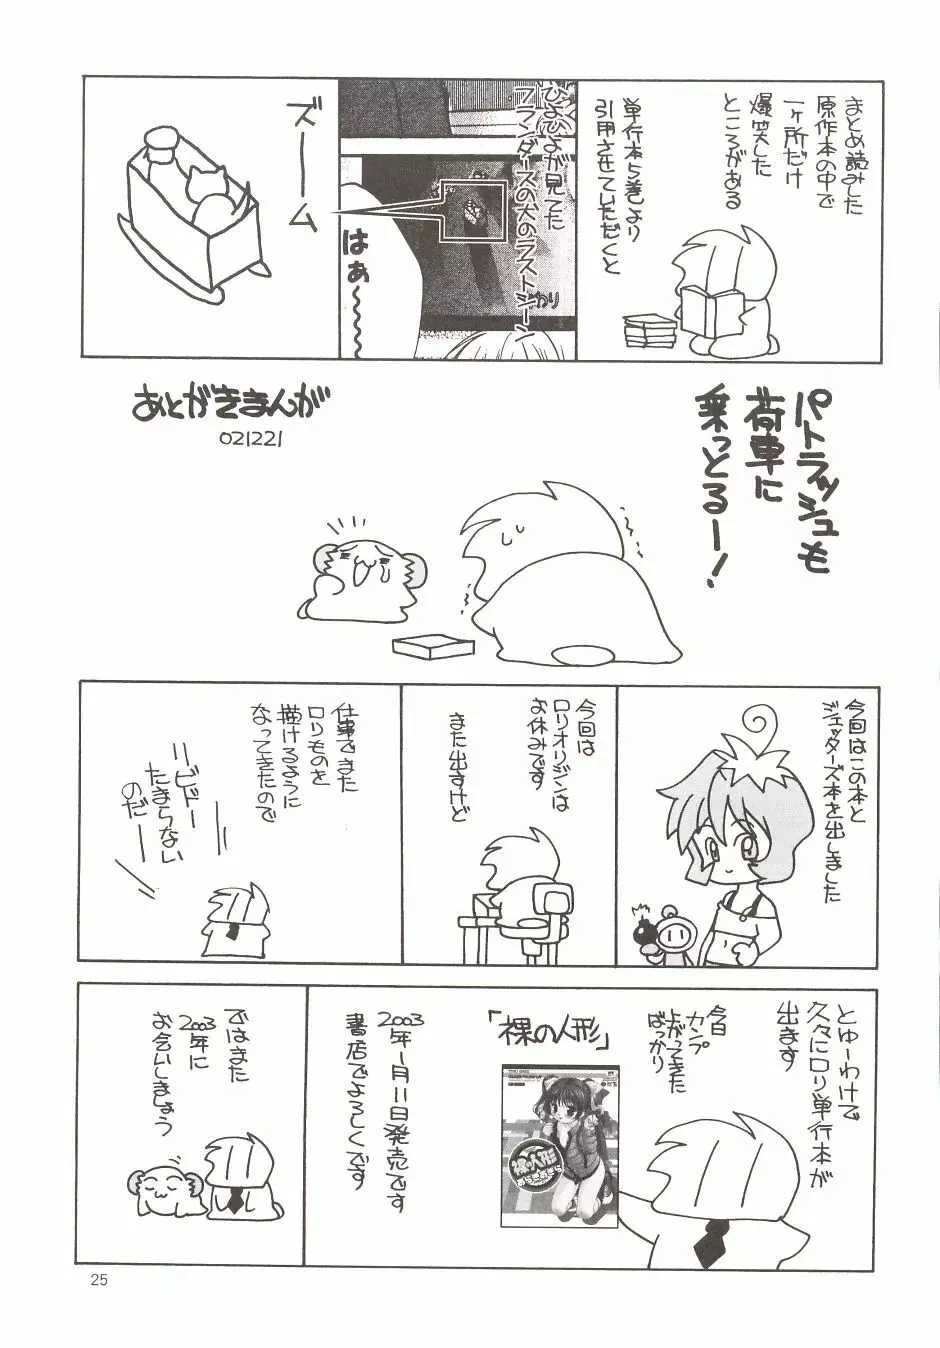 まとめ読みした
原作本の中で
一ヶ所だけ
爆笑した
ところがある
単行本5巻より
引用させていただくと
ひよひよが見てた
フランダースの犬のラストシーン
じわり
はぁ〜〜
ズーーム
パトラッシュも
荷車に
乗っとるー!
あとがきまんが
021221
今回はこの本と
ジェッターズ本を出しました
今回は
ロリオリジンは
お休みです
また出すけど
仕事でまた
ロリものを
描けるように
なってきたので
リビドー
たまらない
のだー
とゆーわけで
久々にロリ単行本が
出ます
今日
カンプ
上がってきた
ばっかり
「裸の人形」
裸の人形
2003年1月11日発売です
書店でよろしくです
ではまた
2003年に
お会いしましょう
25